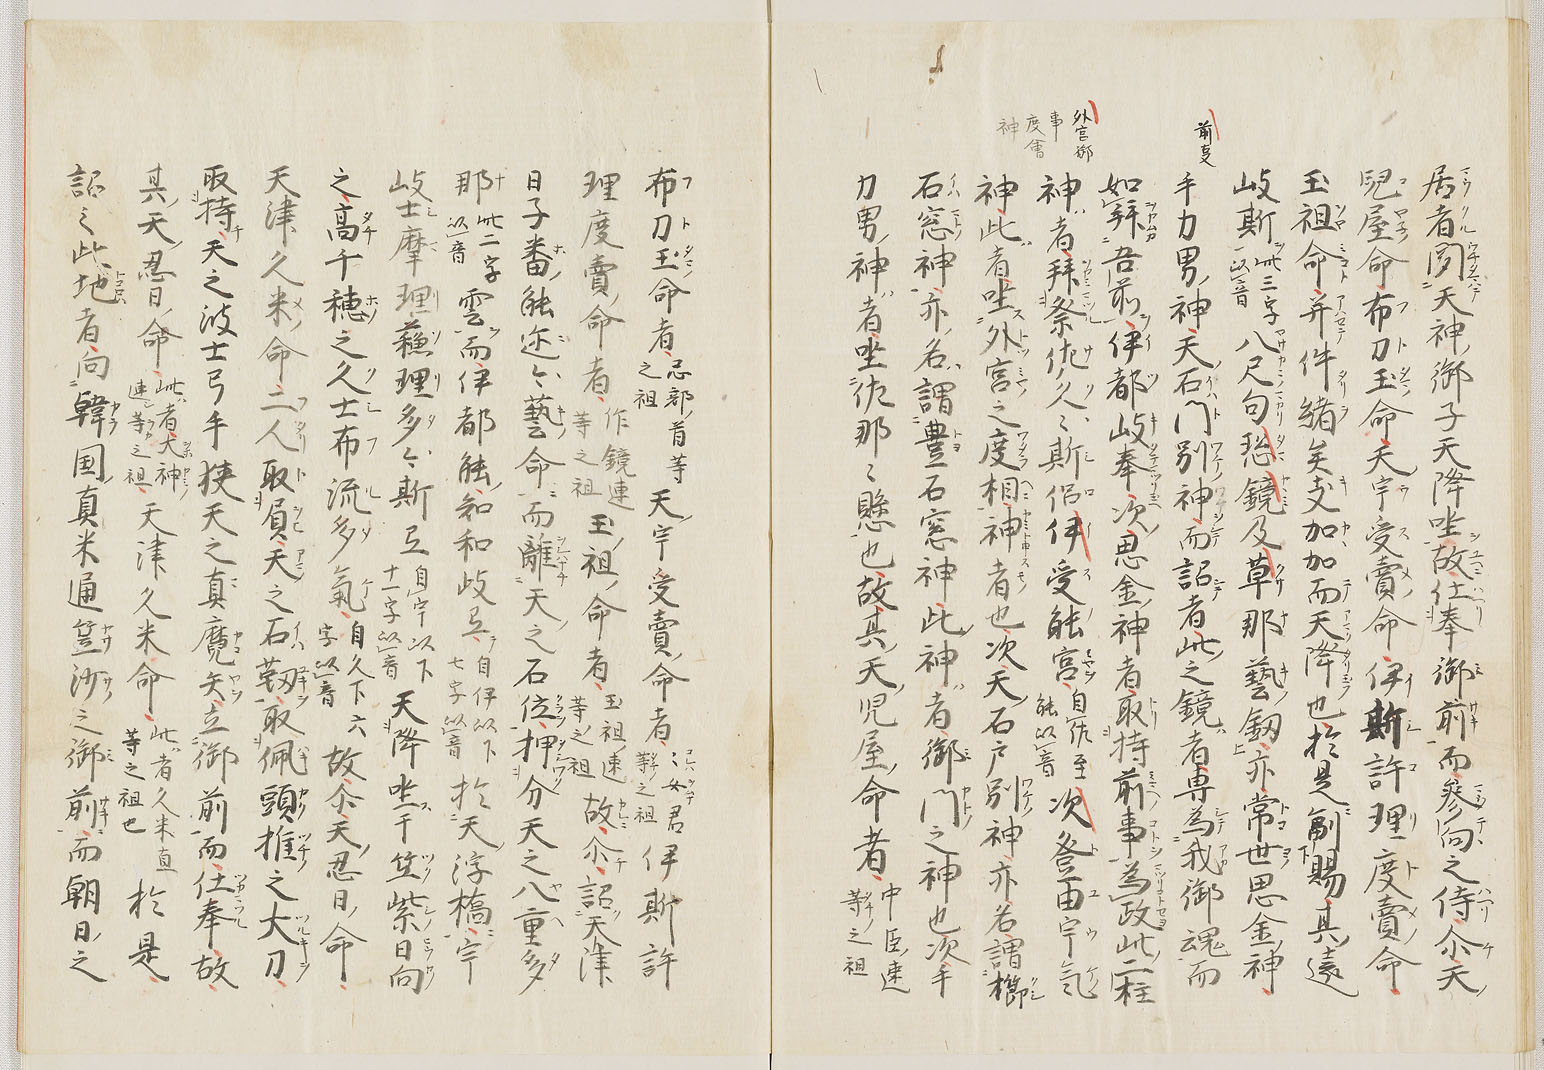 居者聞天神御子天降坐故仕奉御前而參向之侍尒天
兒屋命布刀玉命天宇受賣命伊斯許理度賣命
玉祖命并件緒矣支加加而天降也於是副賜其遠
岐斯此三字以音八尺勾璁鏡及草那藝釼亦常世思金神
手力男神天石門別神而詔者此之鏡者専為我御魂而
前事
如拜吾前伊都岐奉次思金神者取持前事為政此二柱
外宮御
事
度會
神
神者拜祭佐久々斯侶伊受能宮自佐至能以音次登由宇氣
神此者坐外宮之度相神者也次天石戸別神亦名謂櫛
石窓神亦名謂豊石窓神此神者御門之神也次手
力男神者坐佐那々懸也故其天児屋命者中臣連等之祖
布刀玉命者忌部首等之祖天宇受賣命者女君等之祖伊斯許
理度賣命者作鏡連等之祖玉祖命者玉祖連等之祖故尒詔天津
日子番能迩々藝命而離天之石位押分天之八重多
那此二字以音雲而伊都能知和岐弖自伊以下七字以音於天浮橋宇
岐士摩理蘓理多々斯弖自宇以下十一字以音天降坐于笠紫日向
之高千穂之久士布流多氣自久下六字以音故尒天忍日命
天津久米命二人取負天之石靫取佩頭推之大刀
取持天之波士弓手挾天之真魔矢立御前而仕奉故
其天忍日命此者大神連等之祖天津久米命此者久米直等之祖也於是
詔之此地者向韓国真米通笠沙之御前而朝日之